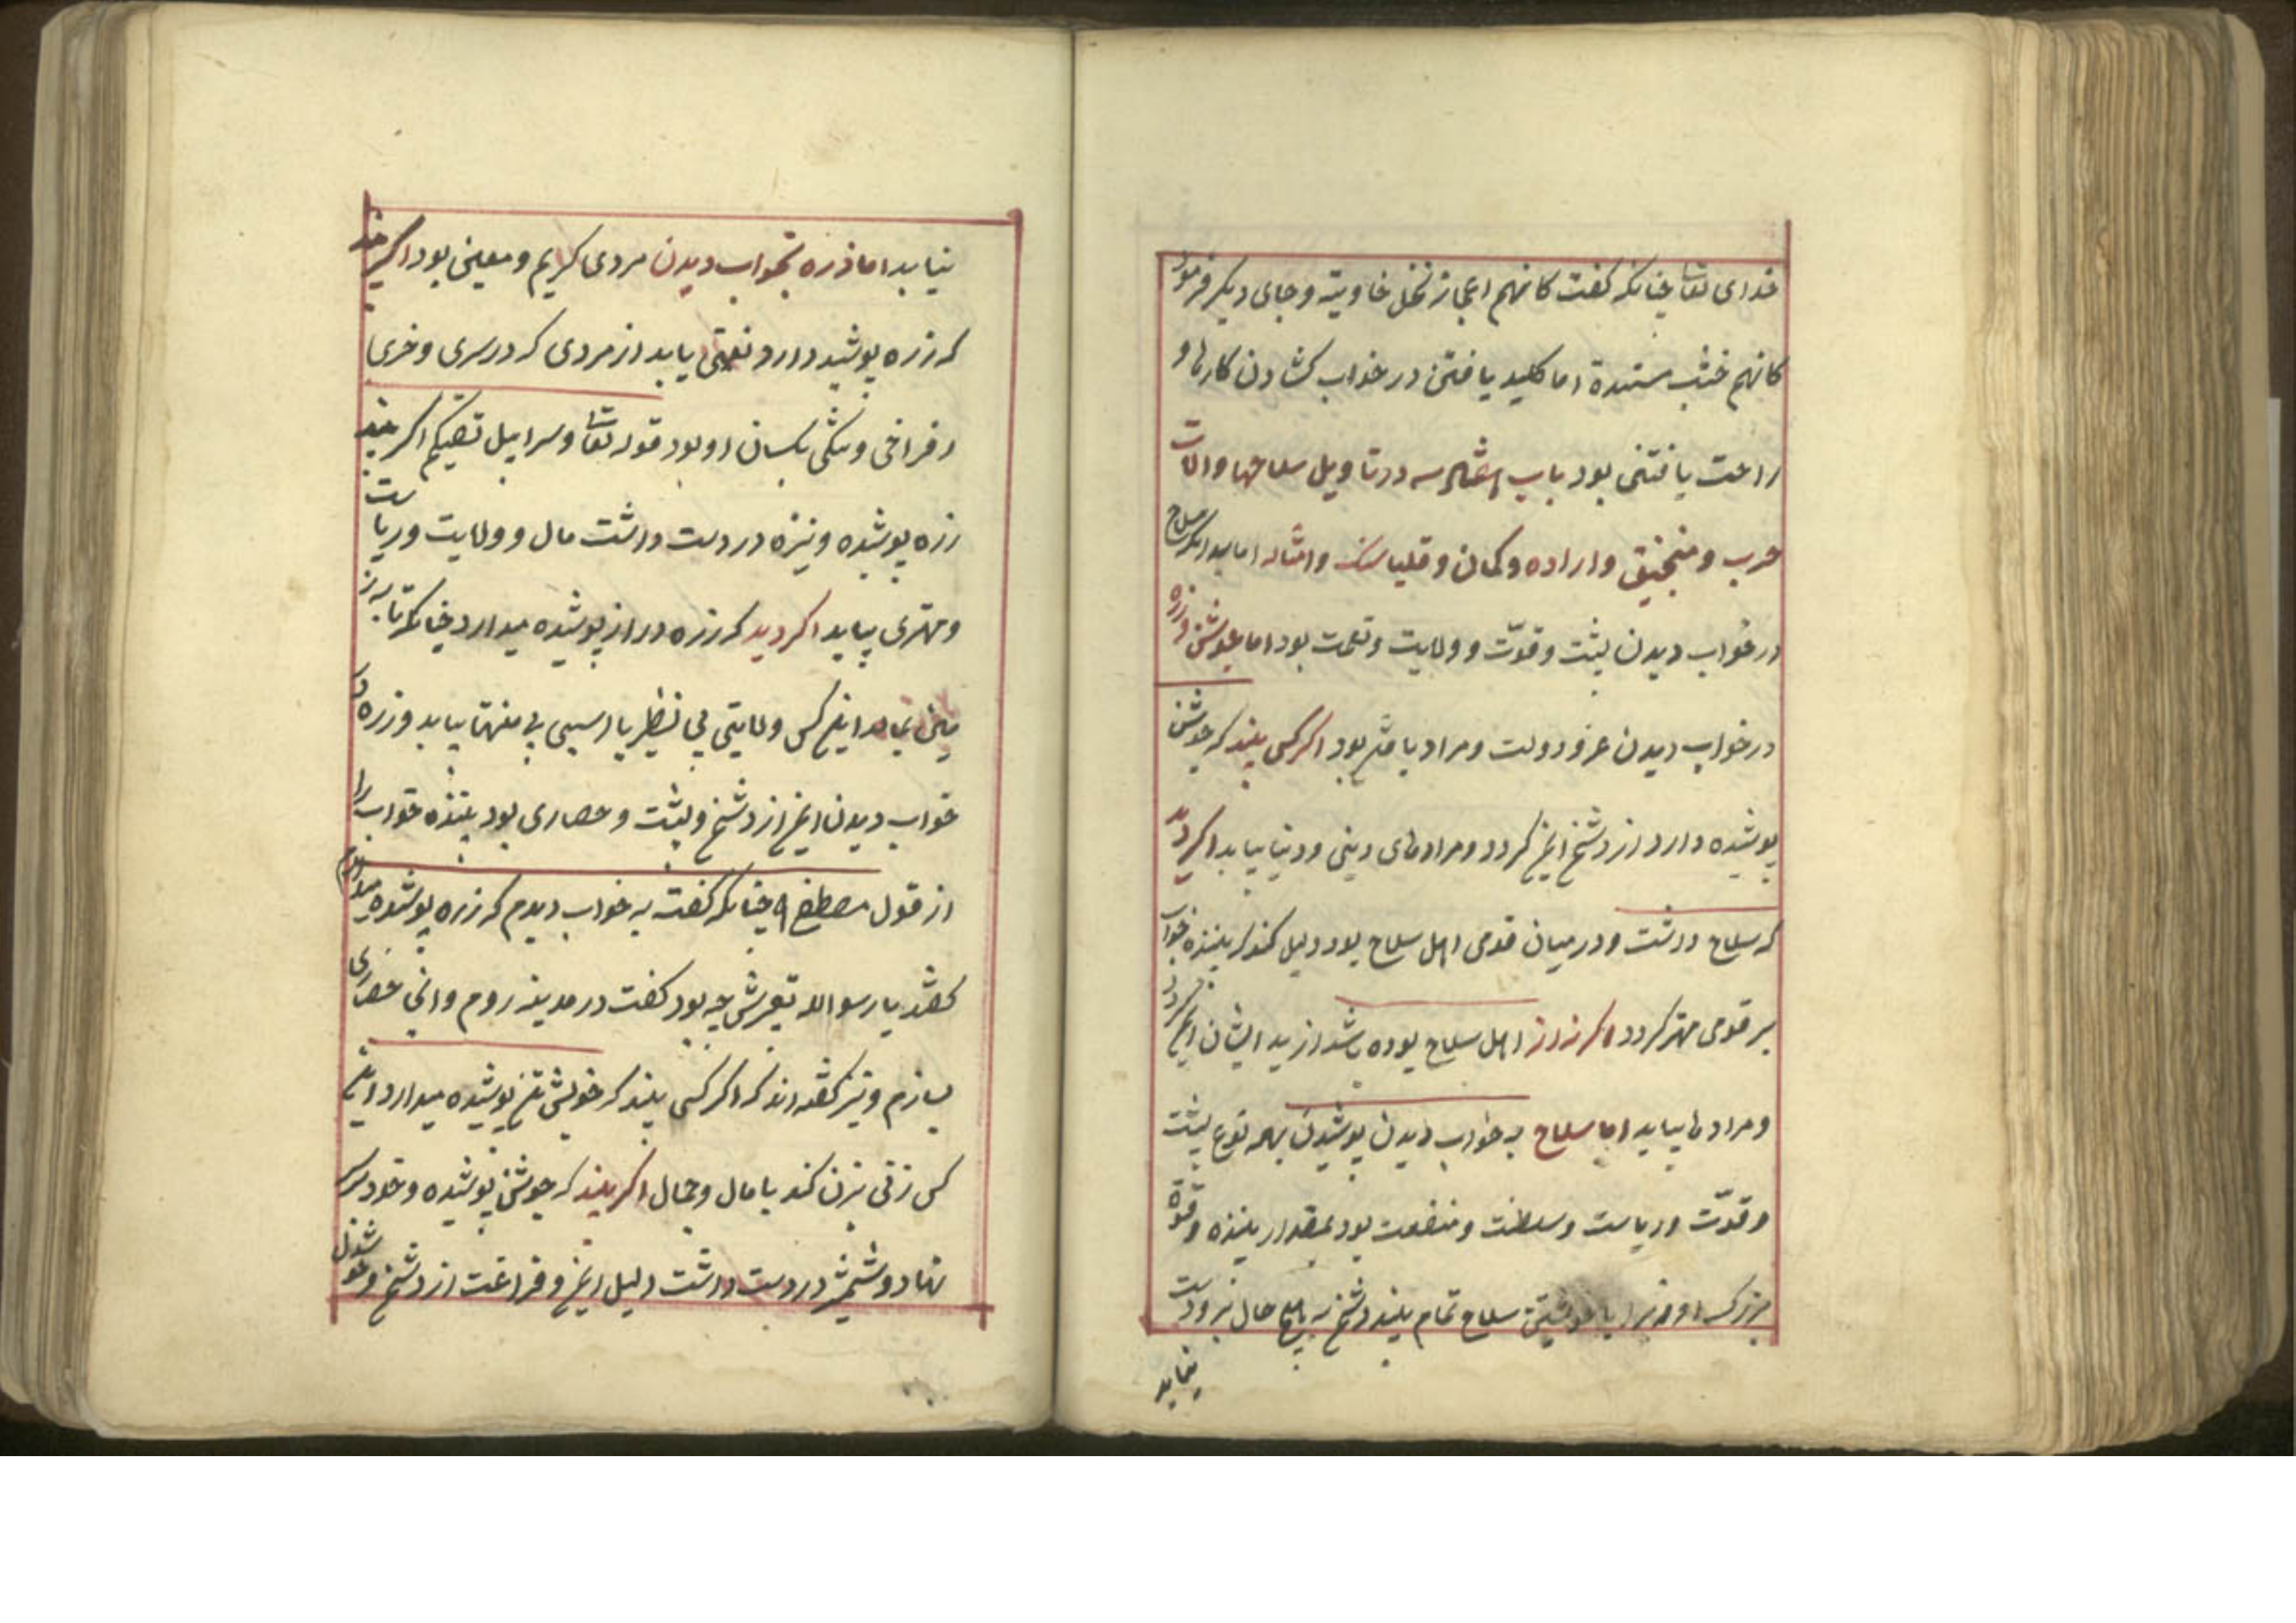 خدای تعا چنانکه گفت کانهم اعجاز نخل خاویته وجای دیکر فرمود
کانهم خشب مسندة اما کلید یافتن در خواب کشادن کارها و
راحت یافتنی بود باب در تاویل سلاحها والات
حرب ومنجنیق واراده وکمان و وامثاله اما بدانکه سلاح
در خواب دیدن پشت وقوّت وولایت ونعمت بود اما جوشن وزره
در خواب دیدن عز ودولت ومراد یافتن بود اکر کسی بیند که جوشن
پوشیده دارد از دشمن ایمن کردد ومرادهای دینی ودنیا بیابد اکر دید
که سلاح داشت ودر میان قومی اهل سلاح بود دلیل کند که بیننده خواب
بر قومی مهتر کردد واکر نه از اهل سلاح بوده باشد از بد ایشان ایمن کردد
ومرادها بیابد اما سلاح به خواب دیدن پوشیدن بهمه نوع پشت
وقوّت وریاست وسلطنت ومنفعت بود بمقدار بیننده وقوة
بزرکی او سلاح تمام بیند دشمن به هیچ حال برو دست
نیابد
نیابد اما زره بخواب دیدن مردی کریم ومعین بود اکر
که زره پوشید دارد نعمتی یابد از مردی که در سری وخری
وفراخی وتنکی یکسان او بود قوله تعا وسرابیل تقیکم اکر بیند
زره پوشیده ونیزه در دست داشت مال وولایت وریاست
ومهتری بیابد اکر دید که زره دراز پوشیده میدارد چنانکه تا به ز
مین اینکس ولایتی بی نظیر یا اسبی بی منتها بیابد وزره
خواب دیدن ایمن از دشمن وپشت وحصاری بود بیننده خواب را
از قول مصطفی چنانکه گفت به خواب دیدم که زره پوشیده میدارم
گفتند یا رسوالله تعبیرش چه بود گفت در مدینه روم وانی حصاری
بسازم ونیز گفته اند که اکر کسی بیند که خویشتن پوشیده میدارد این
کس زنی بزن کند با مال وجمال اکر بیند که جوشن پوشیده وخود بر سر
نهاد وشمشیر در دست داشت دلیل ایمن وفراغت از دشمن